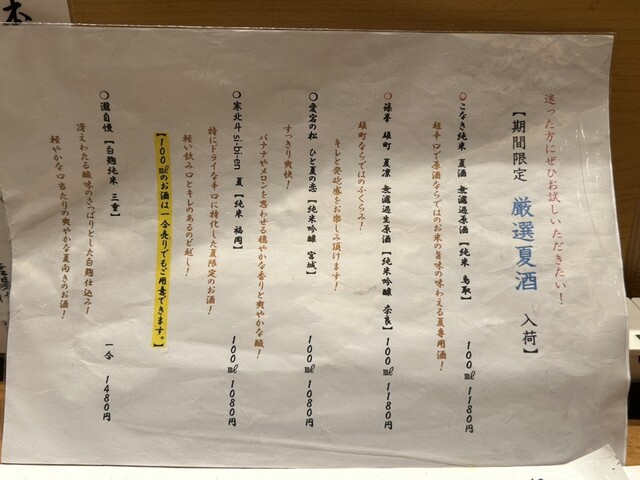 迷った方にぜひお試しいただきたい！
【期間限定 厳選夏酒 入荷】
○こなき純米 夏酒 無濾過原酒【純米 鳥取】 100㎖ 1180円
超辛口で原酒ならではのお米の旨味の味わえる夏専用酒！
雄町 夏凛 無濾過生原酒【純米吟醸 奈良】 100㎖ 1180円
雄町ならではのふくらみ！
キレと発砂感をお楽しみ頂けます！
○愛宕の松 ひと夏の恋【純米吟醸 宮城】 100㎖ 1080円
すっきり爽快！
バナナやメロンを思わせる穏やかな香りと爽やかな酸！
○寒北斗 si-bi-en 夏【純米 福岡】 100㎖ 1080円
特にドライな辛口に特化した夏限定のお酒！
軽い飲み口とキレのあるのど越し！
【100㎖のお酒は一合売りでもご用意できます。】
○瀧自慢【白麹純米 三重】 一合 1480円
冴えわたる酸味のさっぱりとした白麹仕込み！
軽やかな口当たりの爽やかな夏向きのお酒！
本